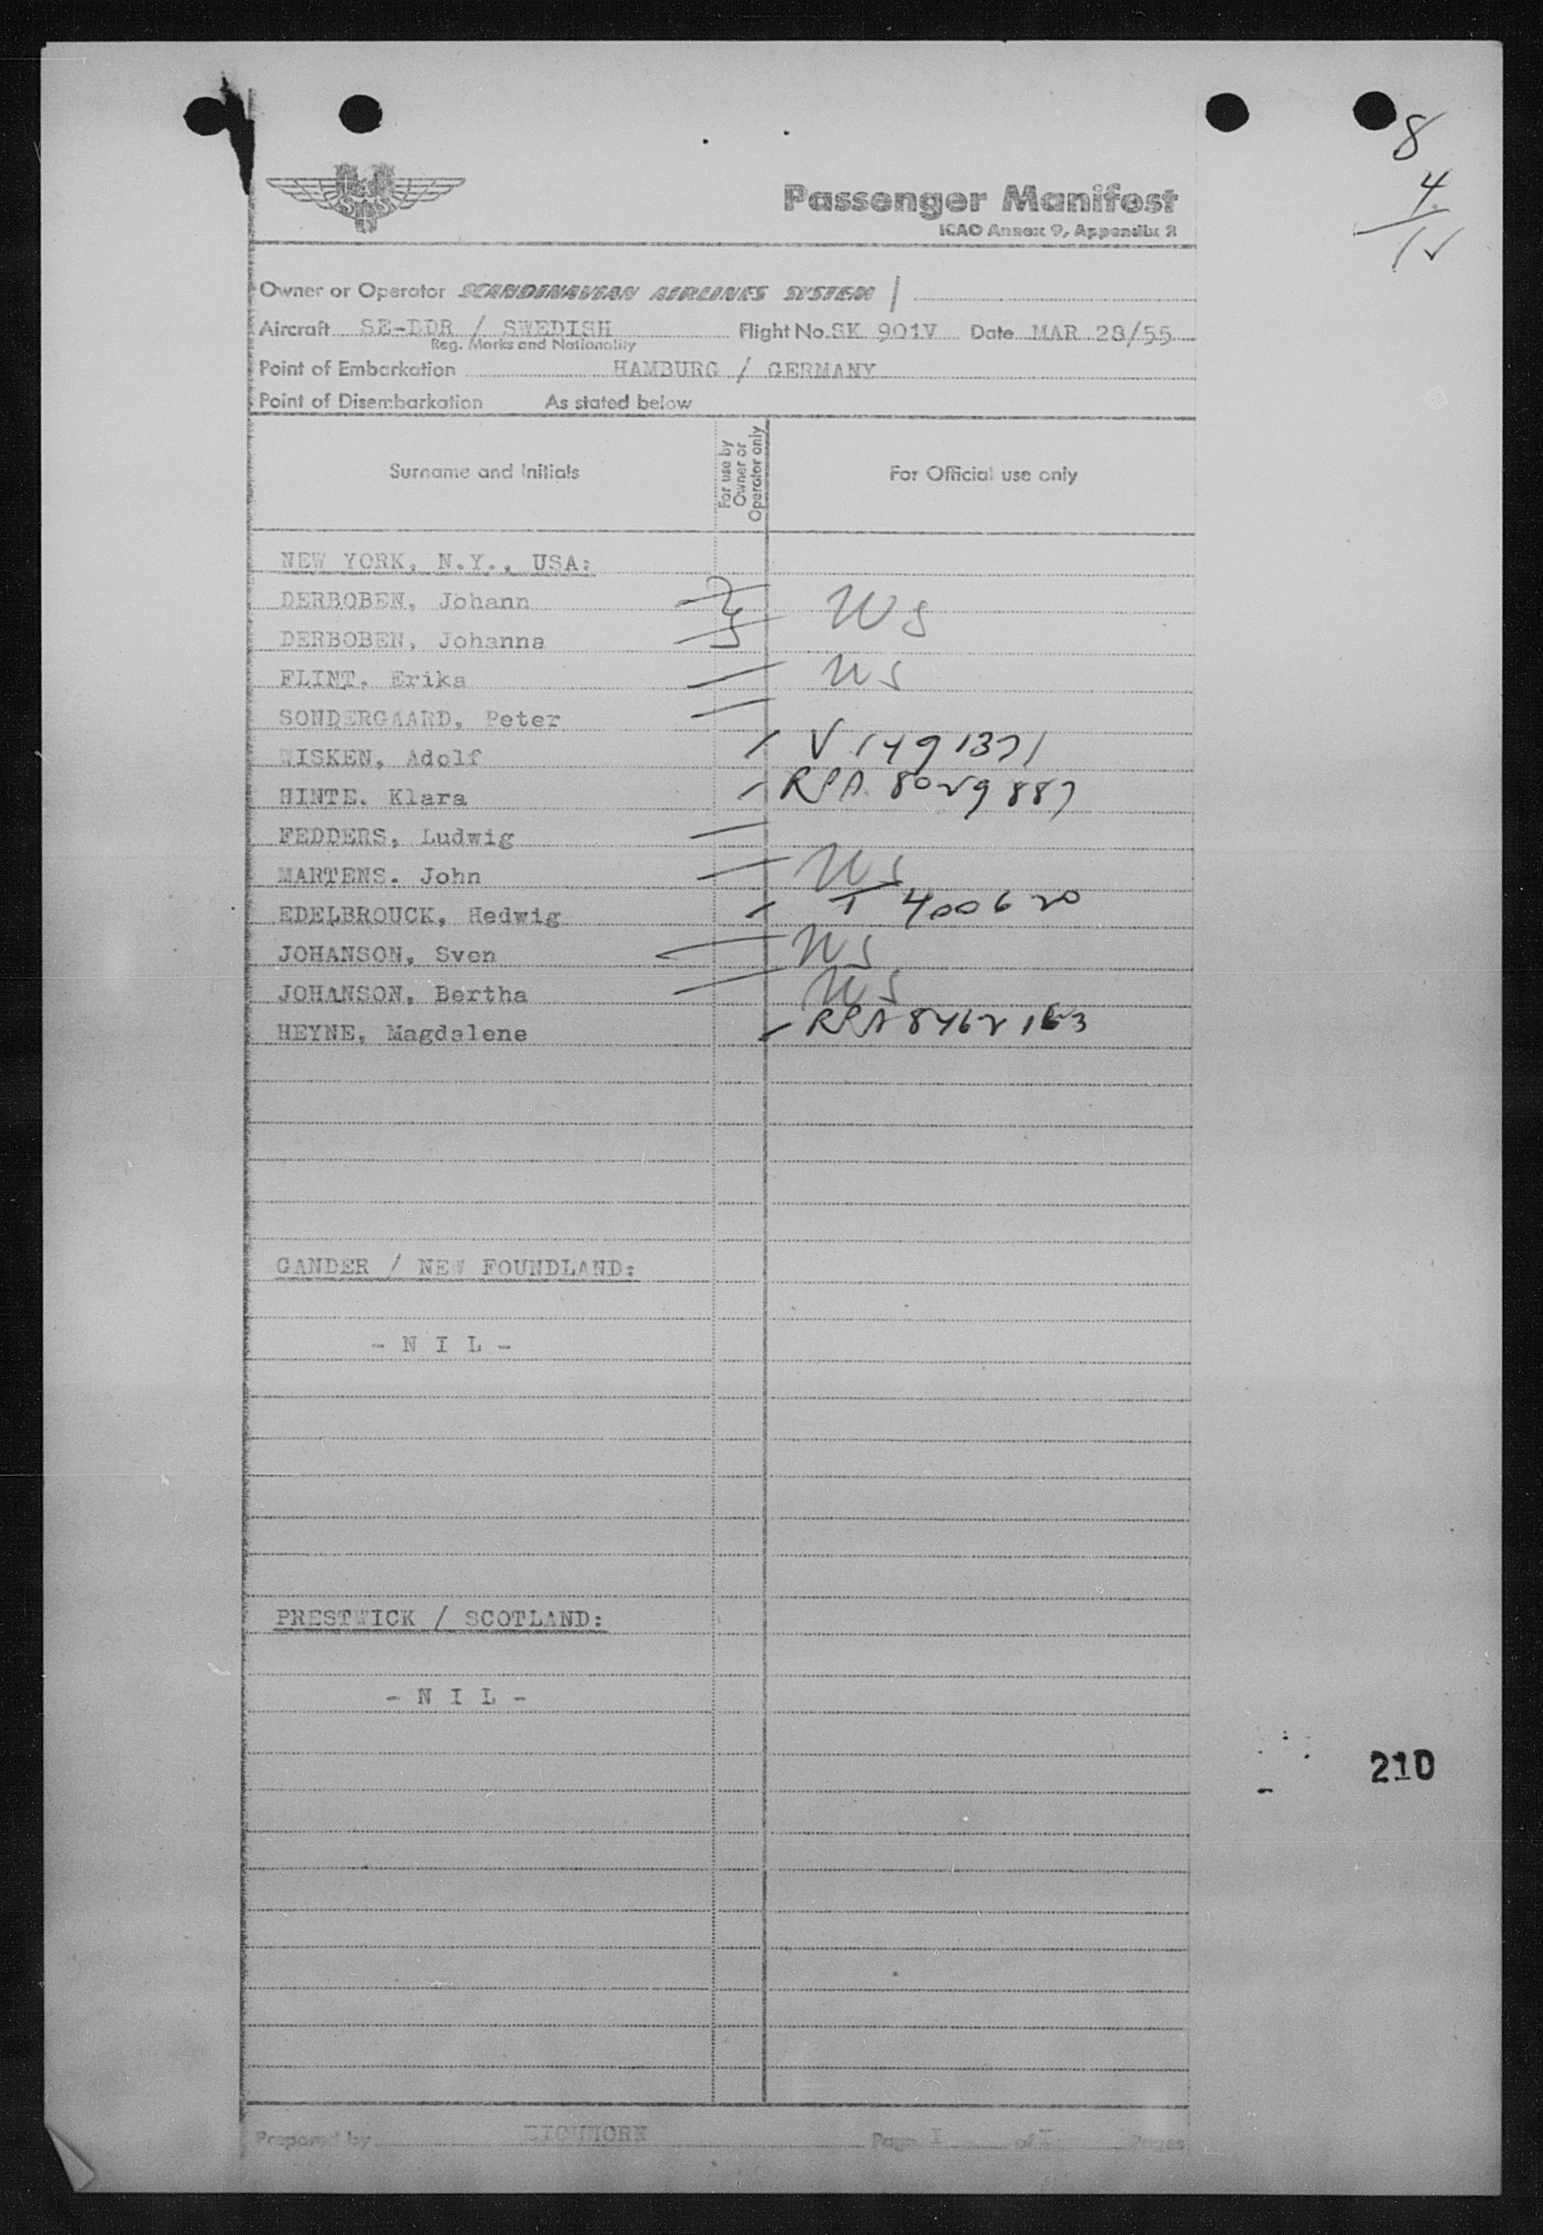 8
4
12
Passenger Manifest
ICAO Annex 9, Appendix 2
Owner or Operator SCANDINAVIAN AIRLINES SYSTEM /
Aircraft SE-BDR / SWEDISH Flight No. SK 901V Date MAR 28/55
Reg. Marks and Nationality
Point of Embarkation HAMBURG / GERMANY
Point of Disembarkation As stated below
Surname and Initials For use by Owner or Operator only For Official use only
NEW YORK, N.Y., USA:
DERBOBEN, Johann
DERBOBEN, Johanna
FLINT. Erika
SONDERGAARD, Peter
WISKEN, Adolf V 1491371
HINTE. Klara RPA 8029887
FEDDERS, Ludwig
MARTENS. John
EDELBROUCK, Hedwig T 400620
JOHANSON, Sven
JOHANSON, Bertha
HEYNE, Magdalene RPA 8462163
GANDER / NEW FOUNDLAND:
- N I L -
PRESTWICK / SCOTLAND:
- N I L -
210
Prepared by EICHHORN Page I of I Pages